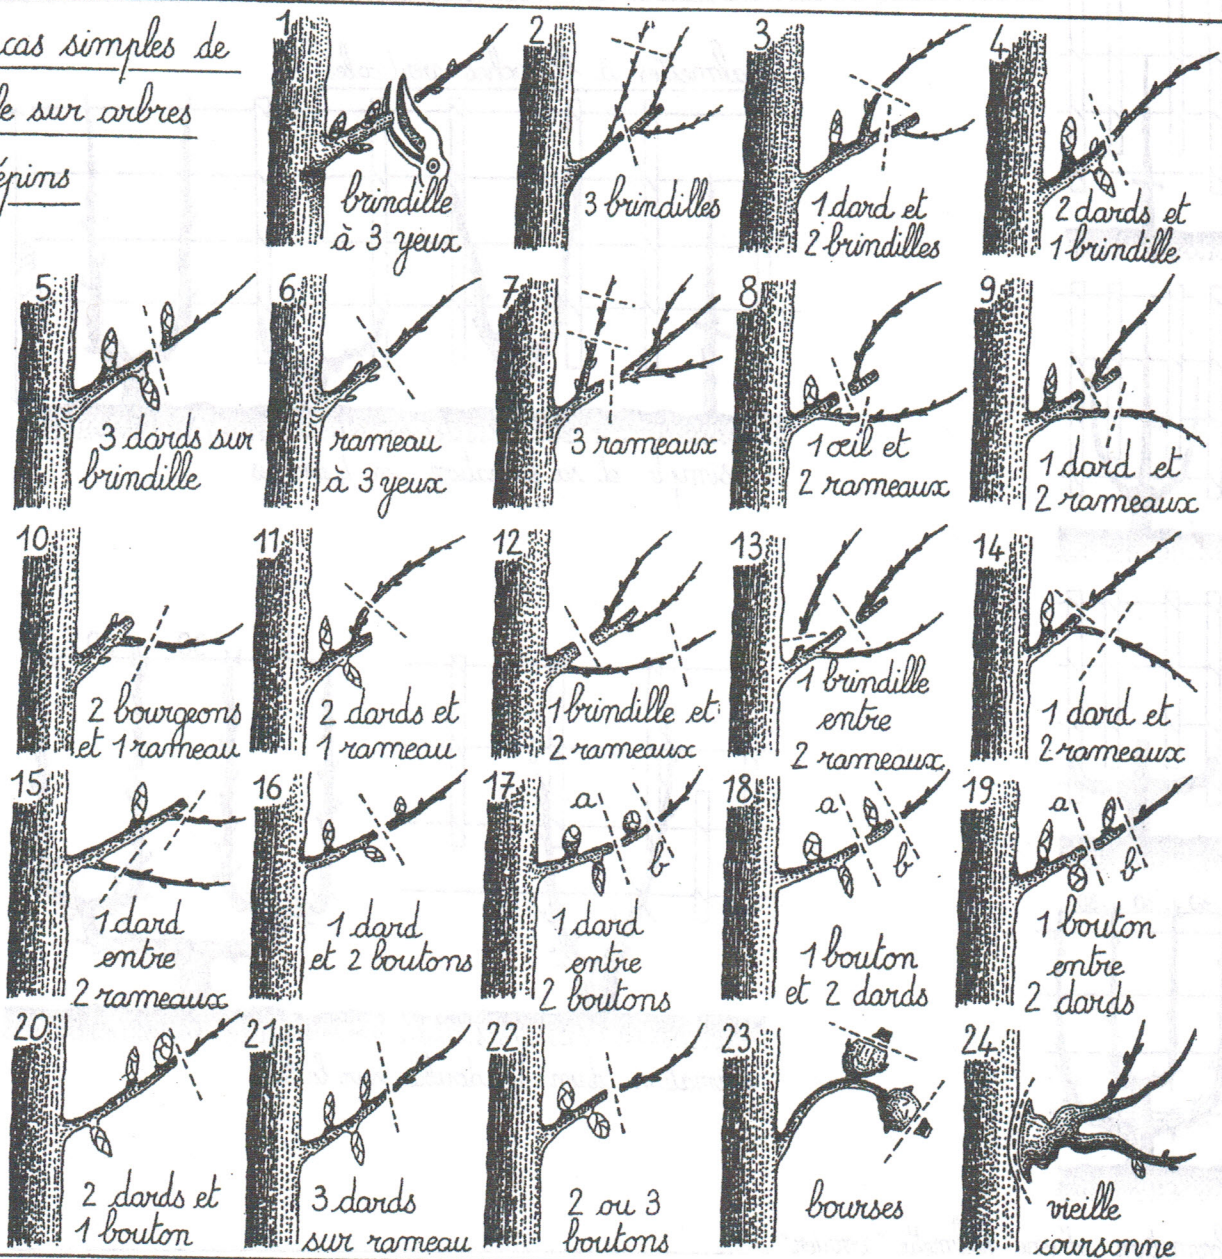 cas simples de
sur arbres
épins
1
brindille
à 3 yeux
2
3 brindilles
3
1 dard et
2 brindilles
4
2 dards et
1 brindille
5
3 dards sur
brindille
6
rameau
à 3 yeux
7
3 rameaux
8
1 œil et
2 rameaux
9
1 dard et
2 rameaux
10
2 bourgeons
et 1 rameau
11
2 dards et
1 rameau
12
1 brindille et
2 rameaux
13
1 brindille
entre
2 rameaux
14
1 dard et
2 rameaux
15
1 dard
entre
2 rameaux
16
1 dard
et 2 boutons
17
a
b
1 dard
entre
2 boutons
18
a
b
1 bouton
et 2 dards
19
a
b
1 bouton
entre
2 dards
20
2 dards et
1 bouton
21
3 dards
sur rameau
22
2 ou 3
boutons
23
bourses
24
vieille
coursonne